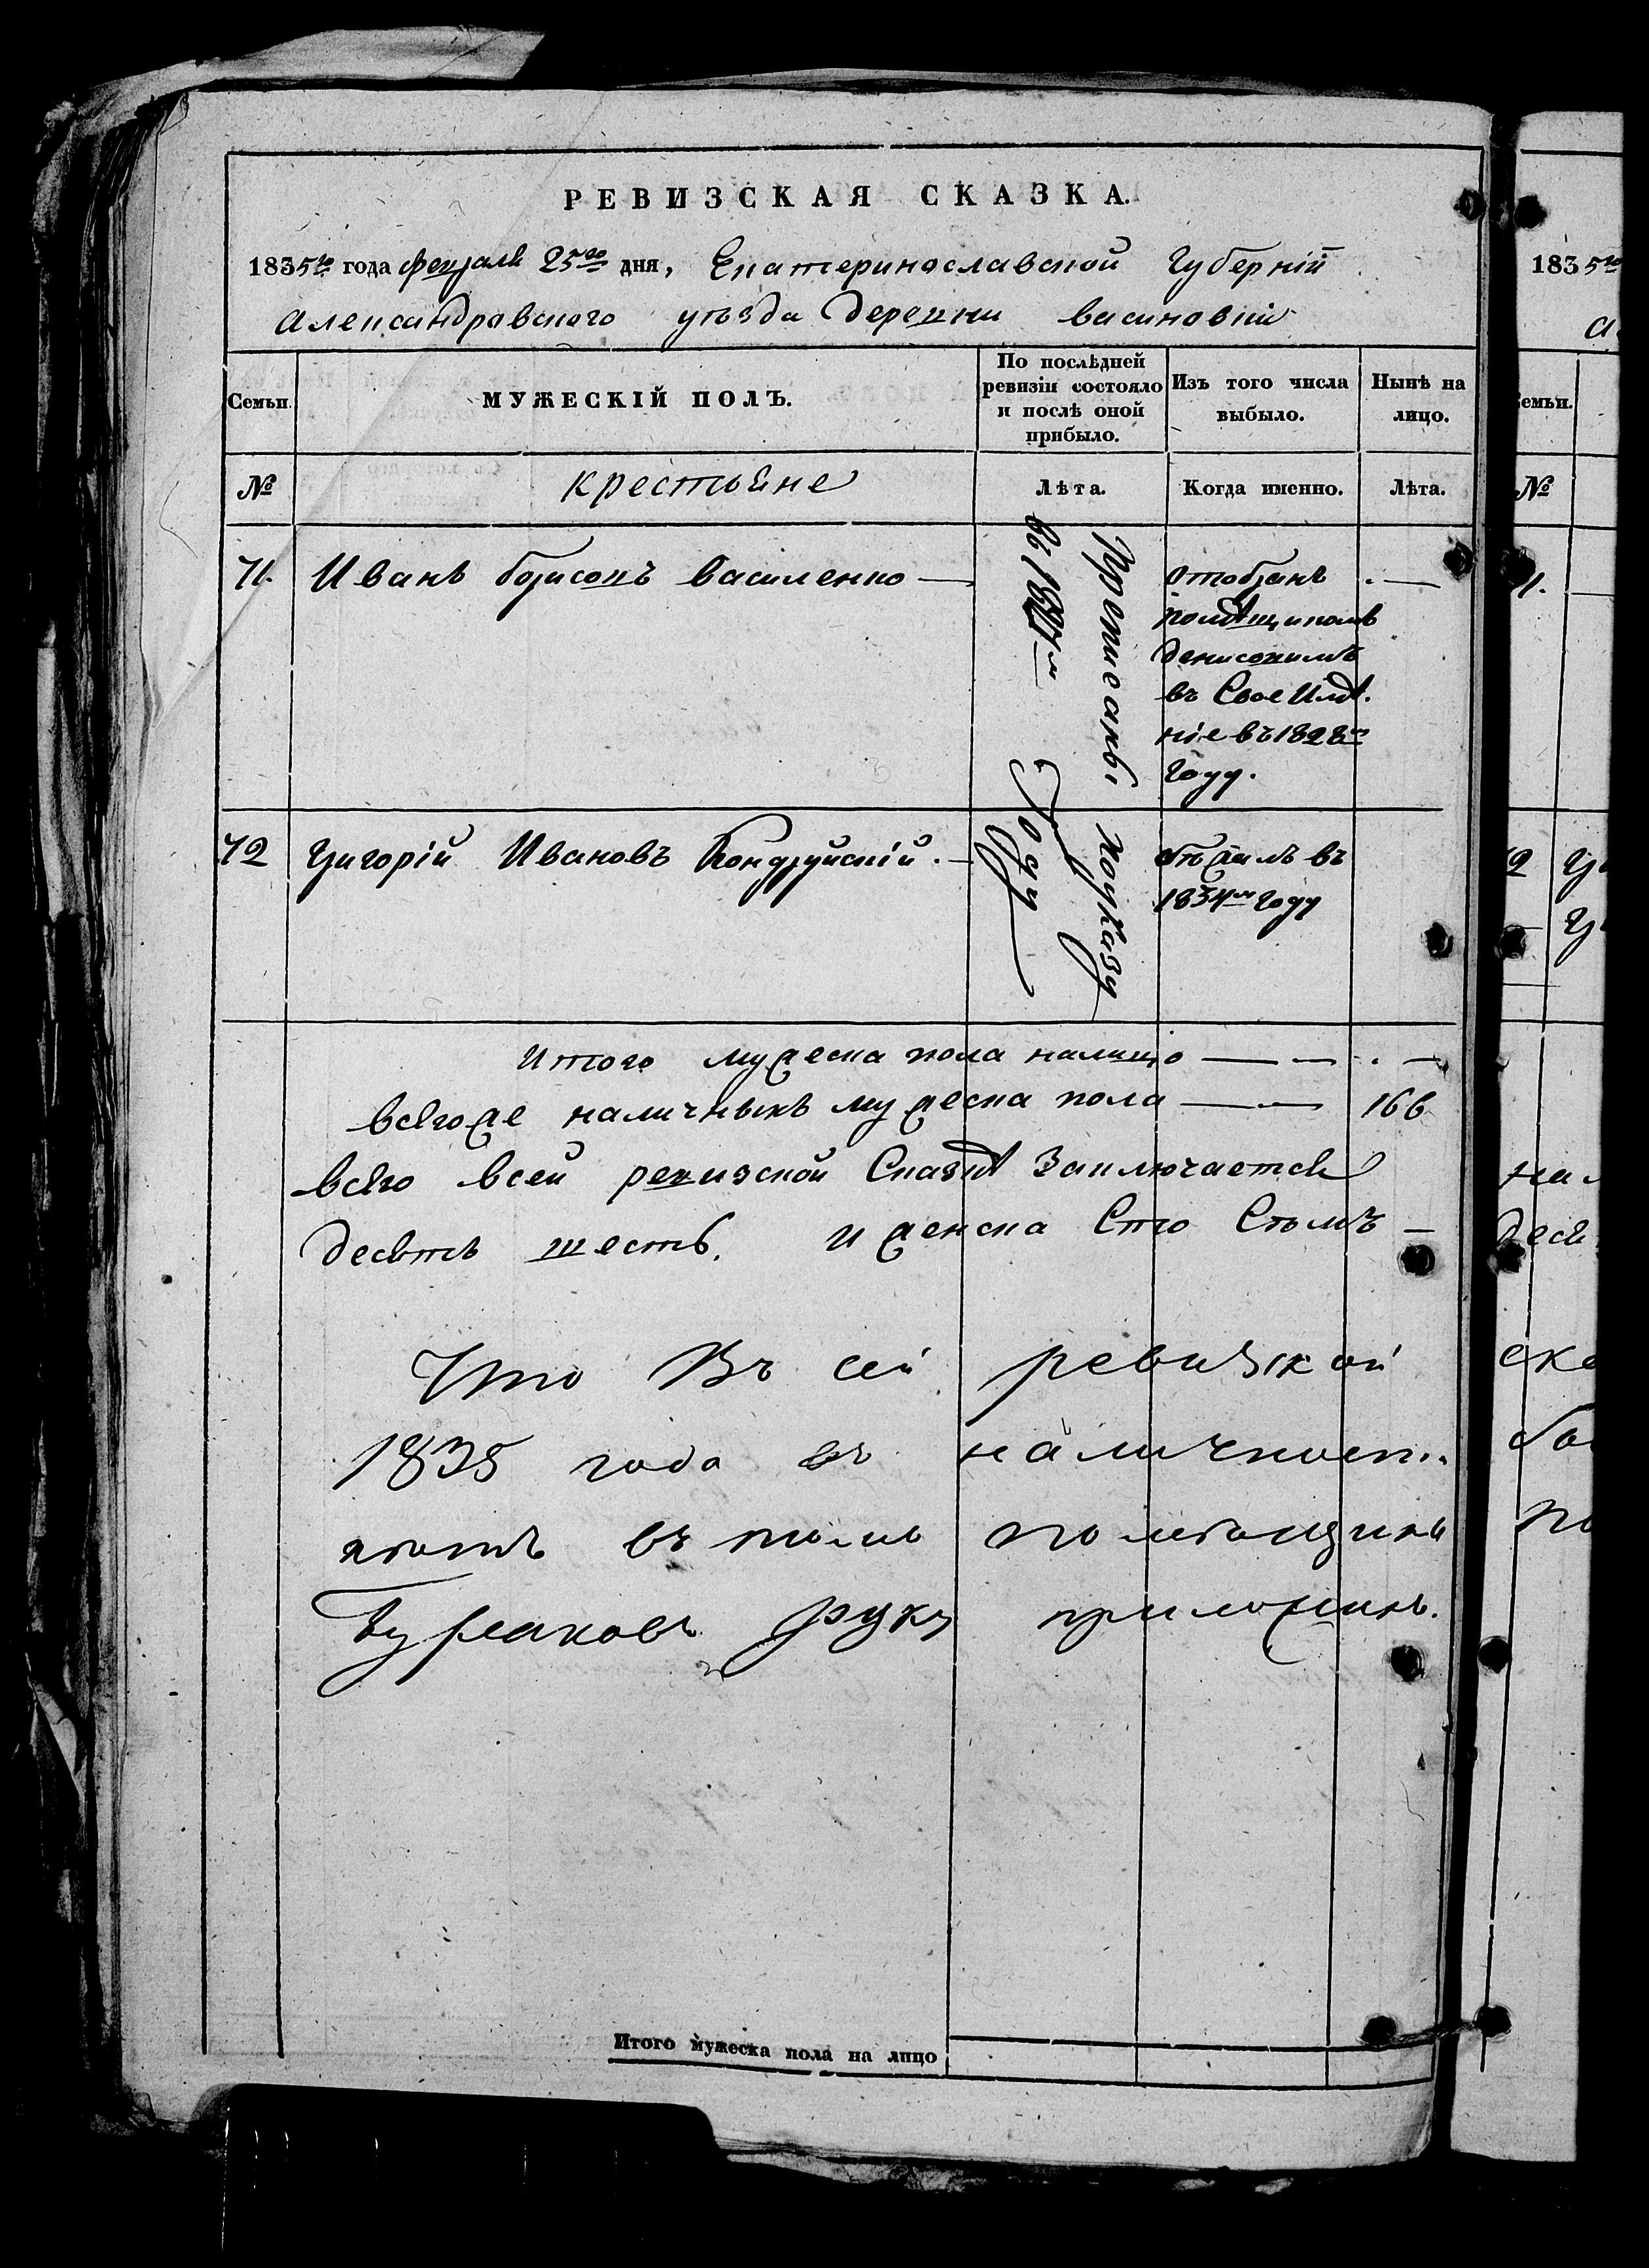 РЕВИЗСКАЯ СКАЗКА.
1835го года февраля 25го дня, Екатеринославской Губерніи
Александравскаго уезда деревни васиновки
Семьи.
МУЖЕСКІЙ ПОЛЪ.
По послѣдней ревизіи состояло и послѣ оной прибыло.
Изъ того числа выбыло.
Нынѣ на лицо.
№
крестьяне
Лѣта.
Когда именно.
Лѣта.
71. Иванъ борисовъ василенко —
приписаны по указу
въ 1827м Году
отобранъ
помѣщикомъ
денисовимъ
въ Свое Имѣ.
ніе въ 1828м
Году.
72 Григорій Ивановъ Кондруйскій. —
бѣжалъ въ
1834м Году
Итого мужеска пола налицо — — . —
всего же наличныхъ мужеска пола — — 166
всего всей ревизской Сказкѣ Заключается
десятъ шесть. и женска Сто Семъ —
Что Въ сей ревизкой
1835 года въ наличност..
въ томъ помѣщикъ
руку приложилъ.
Итого мужеска пола на лицо
1835го
Семьи.
№